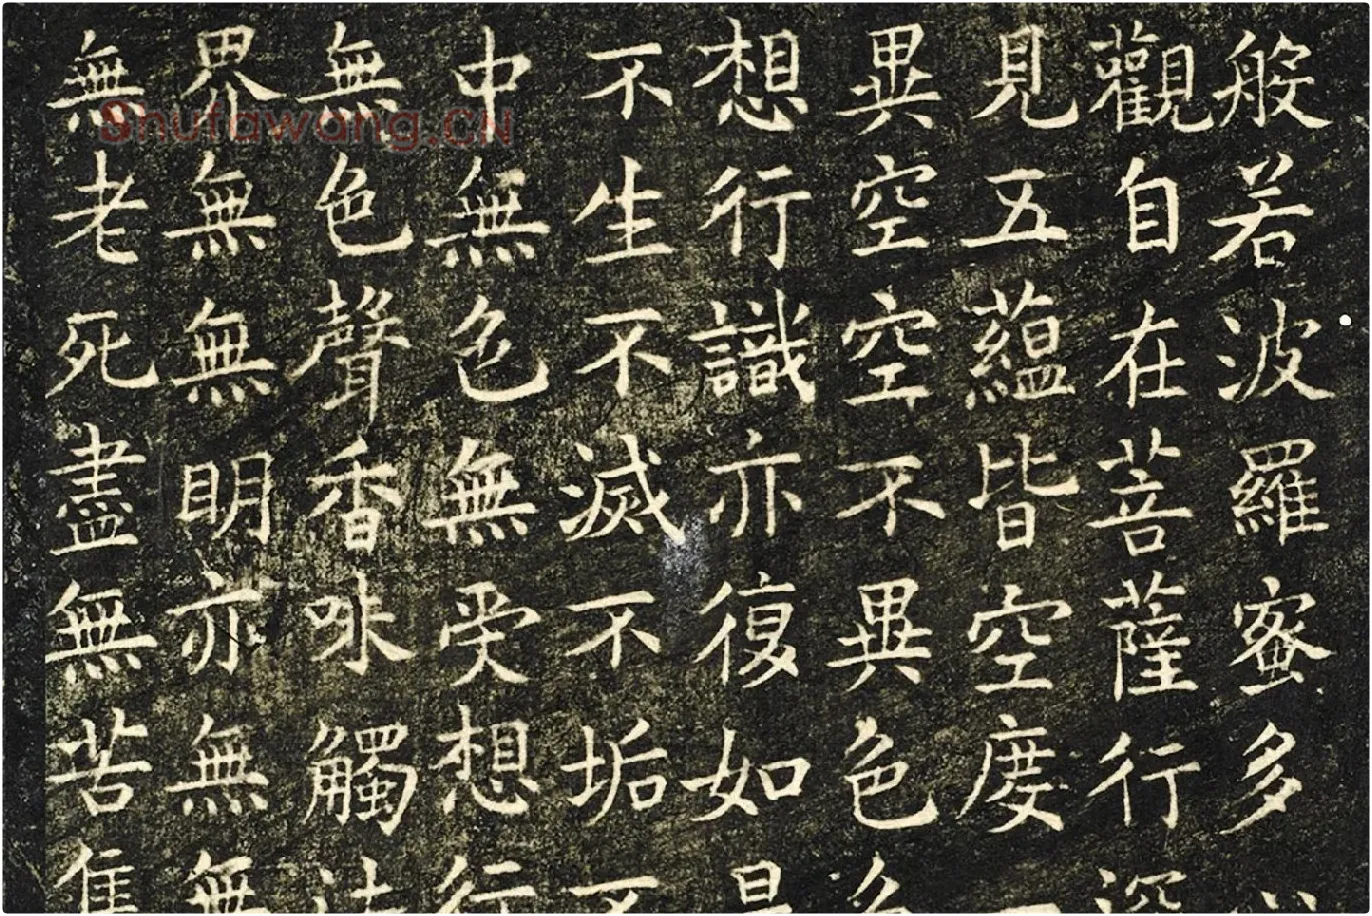 般若波羅蜜多
觀自在菩薩行深
見五蘊皆空度一
異空空不異色色
想行識亦復如是
不生不滅不垢不
中無色無受想行
無色聲香味觸法
界無無明亦無無
無老死盡無苦集
Shufawang.CN